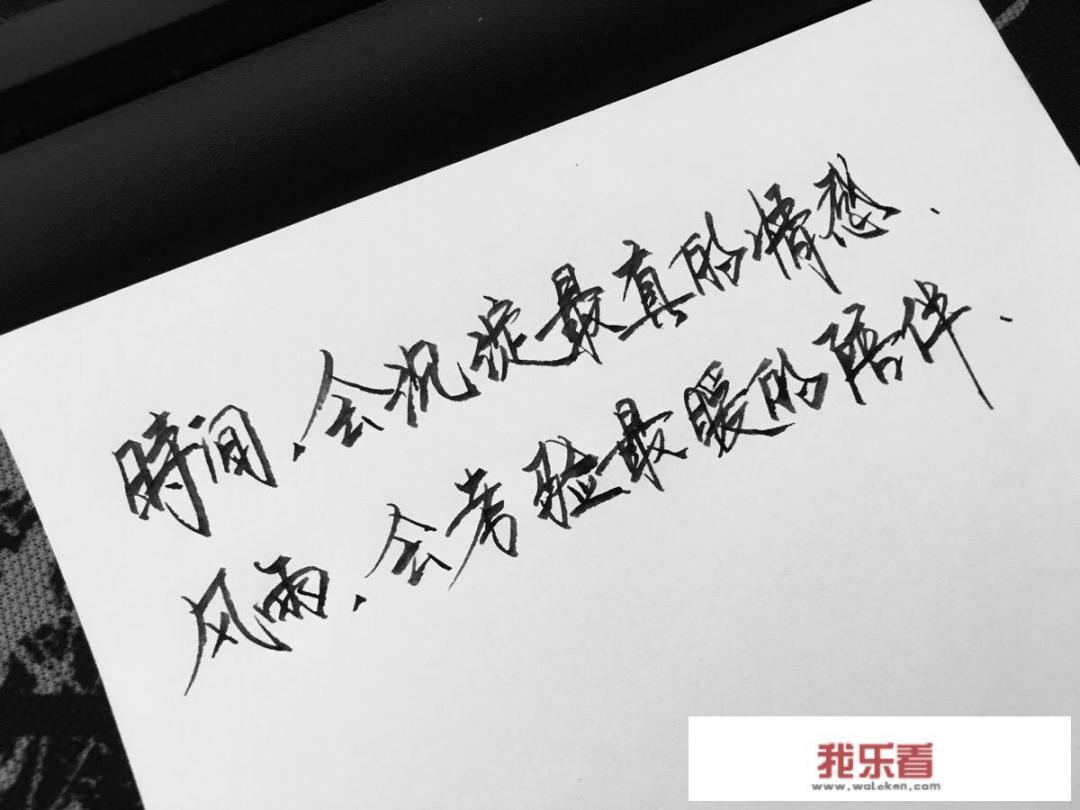 時间,会沉淀最真的情愁.
风雨,会考验最暖的陪伴.
我乐看
www.woleken.com